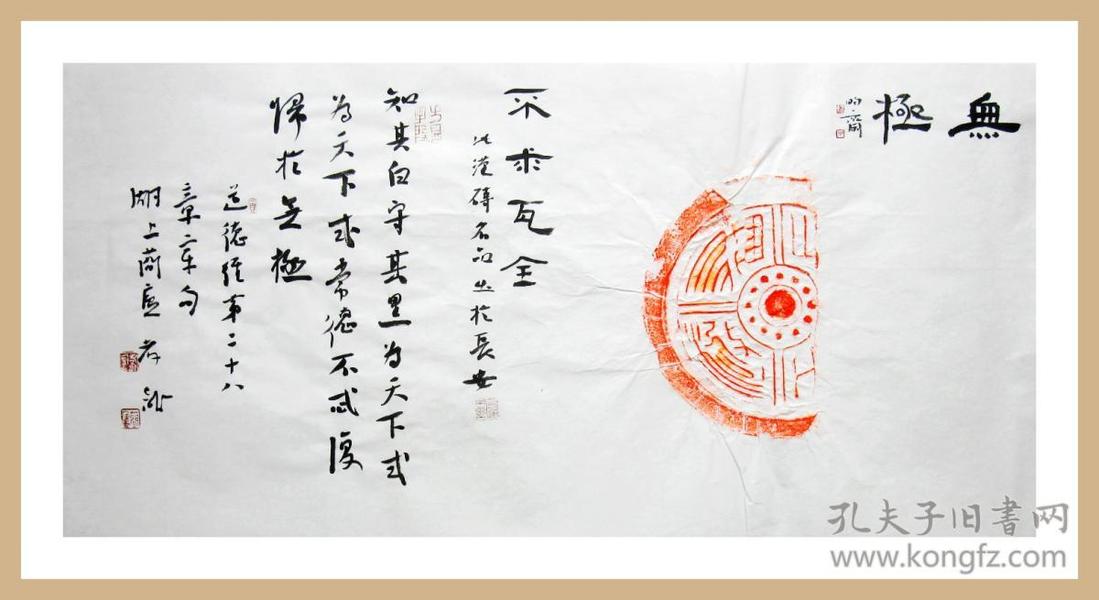 無極
不求瓦全
此漢磚名品出於長安
知其白守其黑為天下式
為天下式常德不忒復
歸於無極
道德經第二十八
章章句
湖上蕳廬
孔夫子旧書网
www.kongfz.com